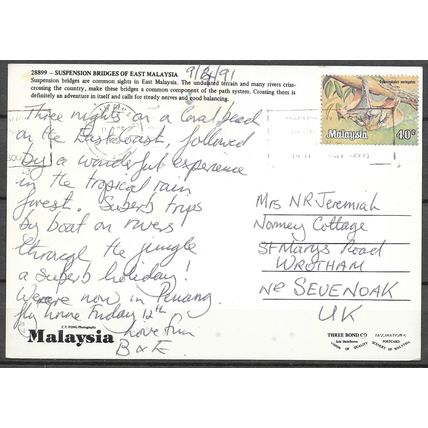 28899 – SUSPENSION BRIDGES OF EAST MALAYSIA
Suspension bridges are common sights in East Malaysia. The undulated terrain and many rivers criss-
crossing the country, make these bridges a common component of the path system. Crossing them is
definitely an adventure in itself and calls for steady nerves and good balancing.
9/4/91
Three nights on a Coral bead
on the East Coast, followed
by a wonderful experience
in the tropical rain
forest. Superb trips
by boat on rivers
through the jungle
a superb holiday!
We're now in Penang.
fly home Friday 12th
Love from
B & E
Malaysia 40c
Mrs N R Jeremiah
Nomey Cottage
St Marys Road
WROTHAM
Nr SEVENOAK
UK
C.T. FONG Photography
Malaysia
THREE BOND CO
Sole Distributor
VISION OF QUALITY
POSTCARD
SCENERY OF MALAYSIA